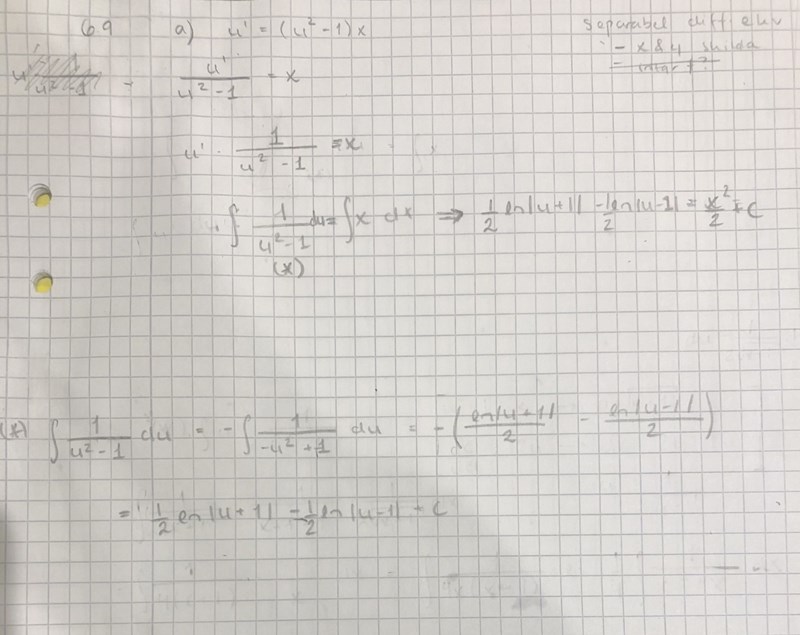 69 a) u' = (u² - 1)x
separabel diff ekv
- x & y skilda
u' / (u² - 1) = x
u' · 1 / (u² - 1) = x
∫ 1 / (u² - 1) du = ∫ x dx ⇒ 1/2 ln|u+1| - 1/2 ln|u-1| = x²/2 + C
(*)
(*) ∫ 1 / (u² - 1) du = - ∫ 1 / (-u² + 1) du = - ( ln|u+1| / 2 - ln|u-1| / 2 )
= 1/2 ln|u+1| - 1/2 ln|u-1| + C